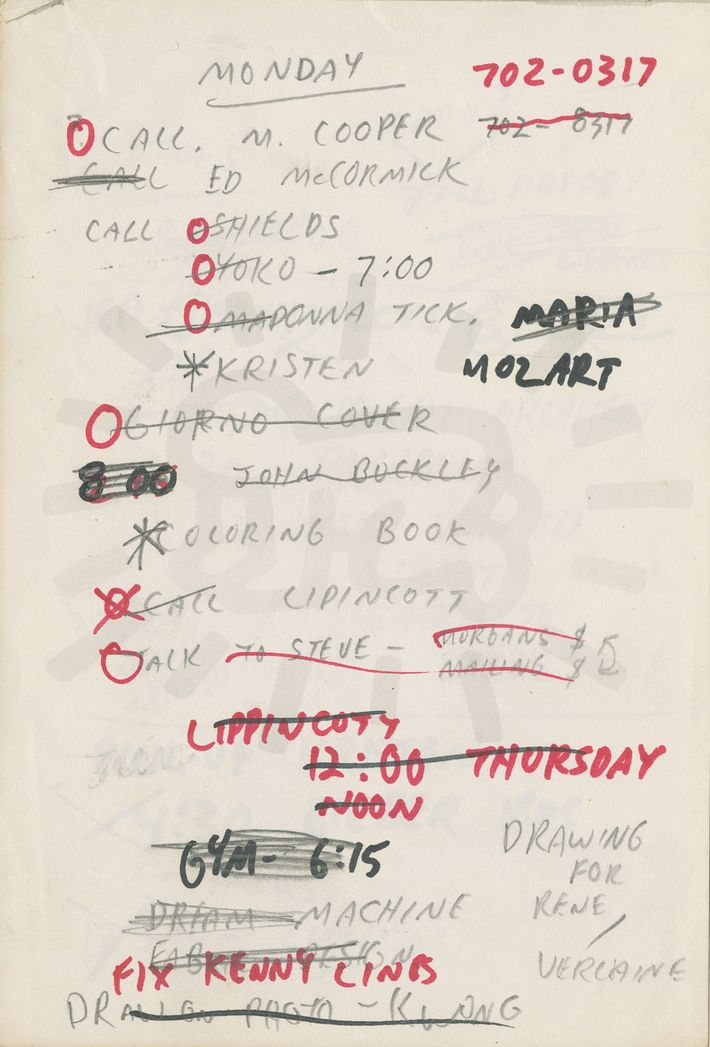 MONDAY
702-0317
CALL. M. COOPER
702-0317
CALL ED McCORMICK
CALL SHIELDS
YOKO - 7:00
MADONNA TICK.
MARIA
*KRISTEN
MOZART
GIORNO COVER
8:00 JOHN BUCKLEY
COLORING BOOK
CALL LIPINCOTT
TALK TO STEVE - MORGANS $
MAILING $ 5
LIPPINCOTT
12:00 THURSDAY
NOON
GYM- 6:15
DRAWING
FOR
RENE
DREAM MACHINE
DESIGN
FIX KENNY LINES
VERLAINE
DRAW ON PHOTO - KWONG